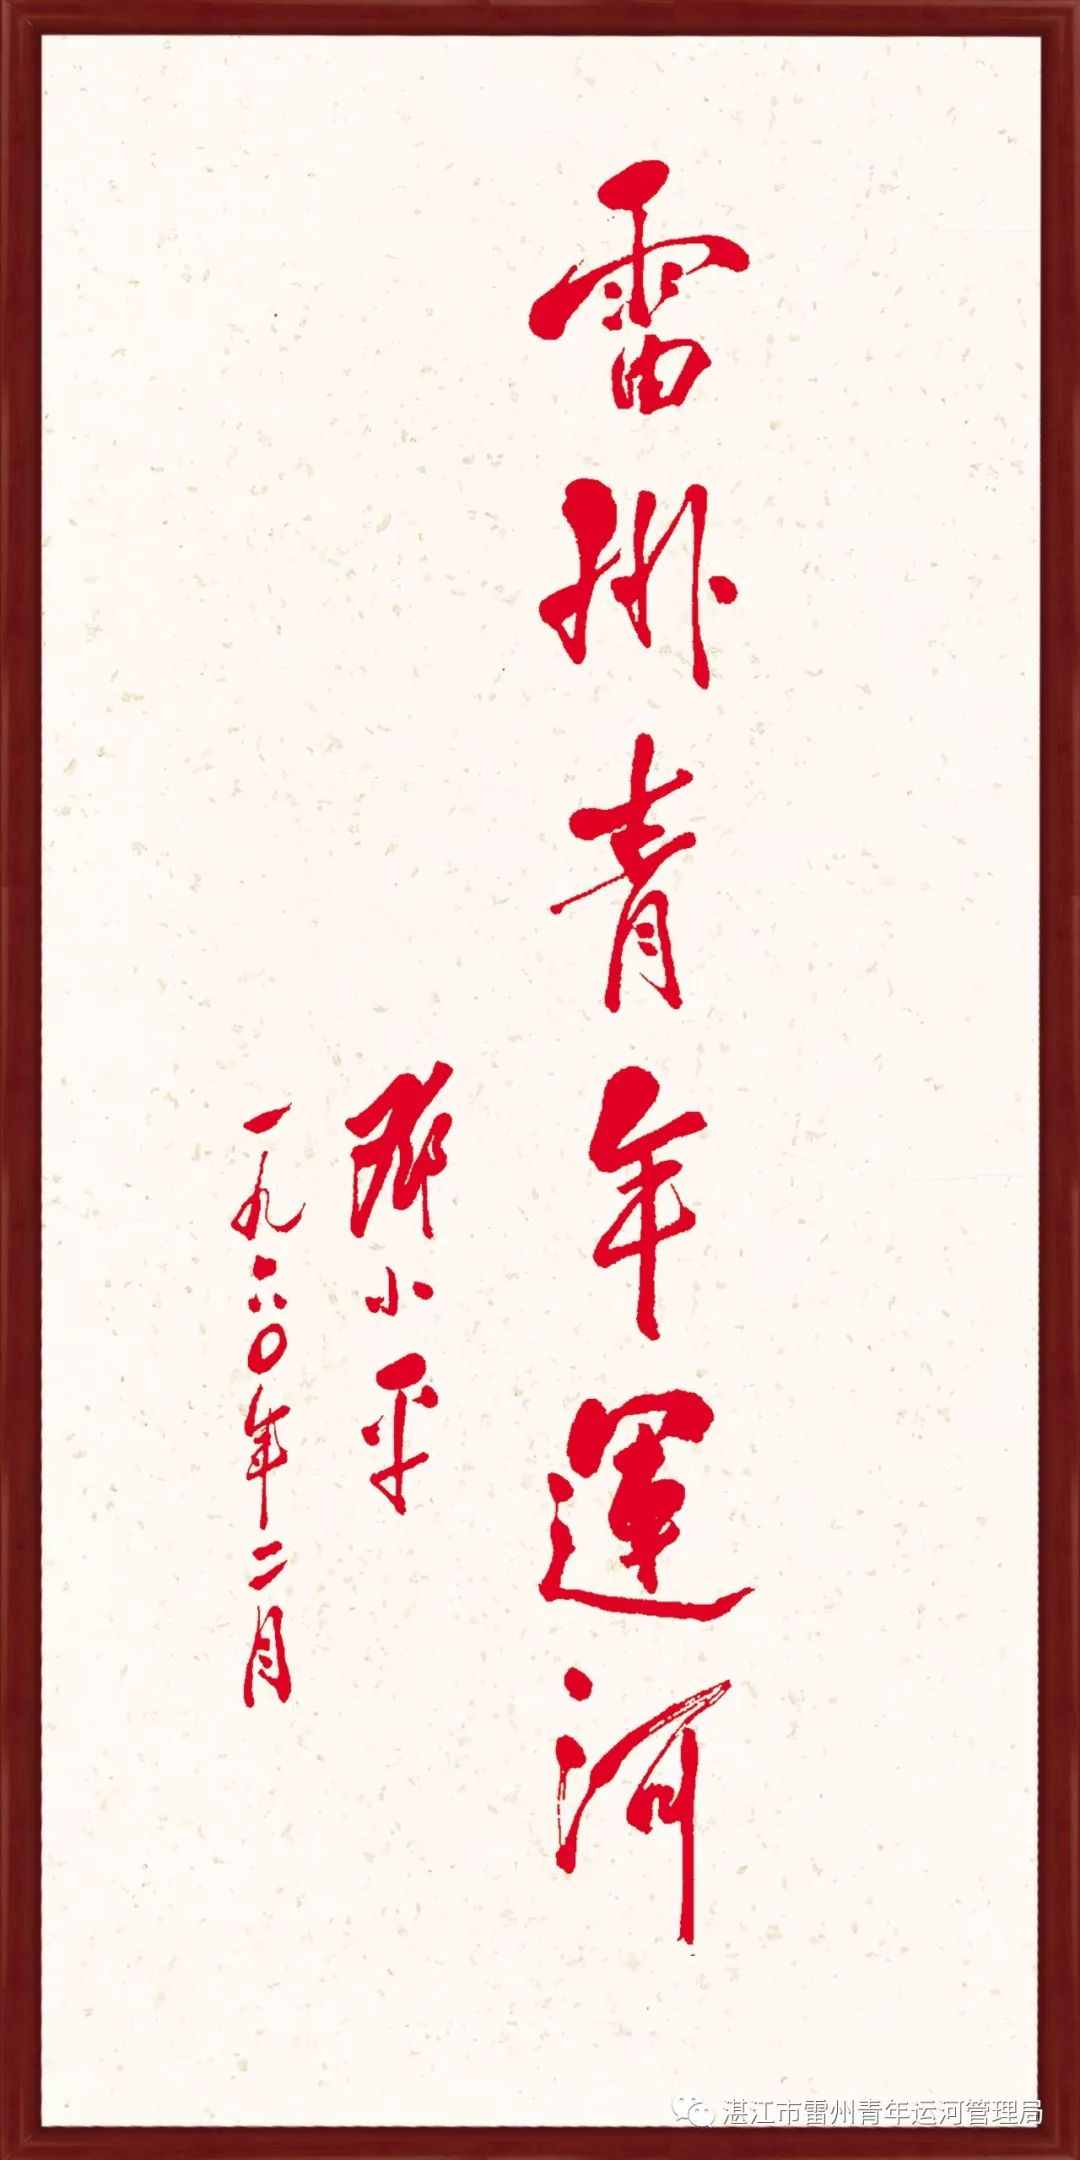 雷州青年運河
邓小平
一九六〇年二月
湛江市雷州青年运河管理局